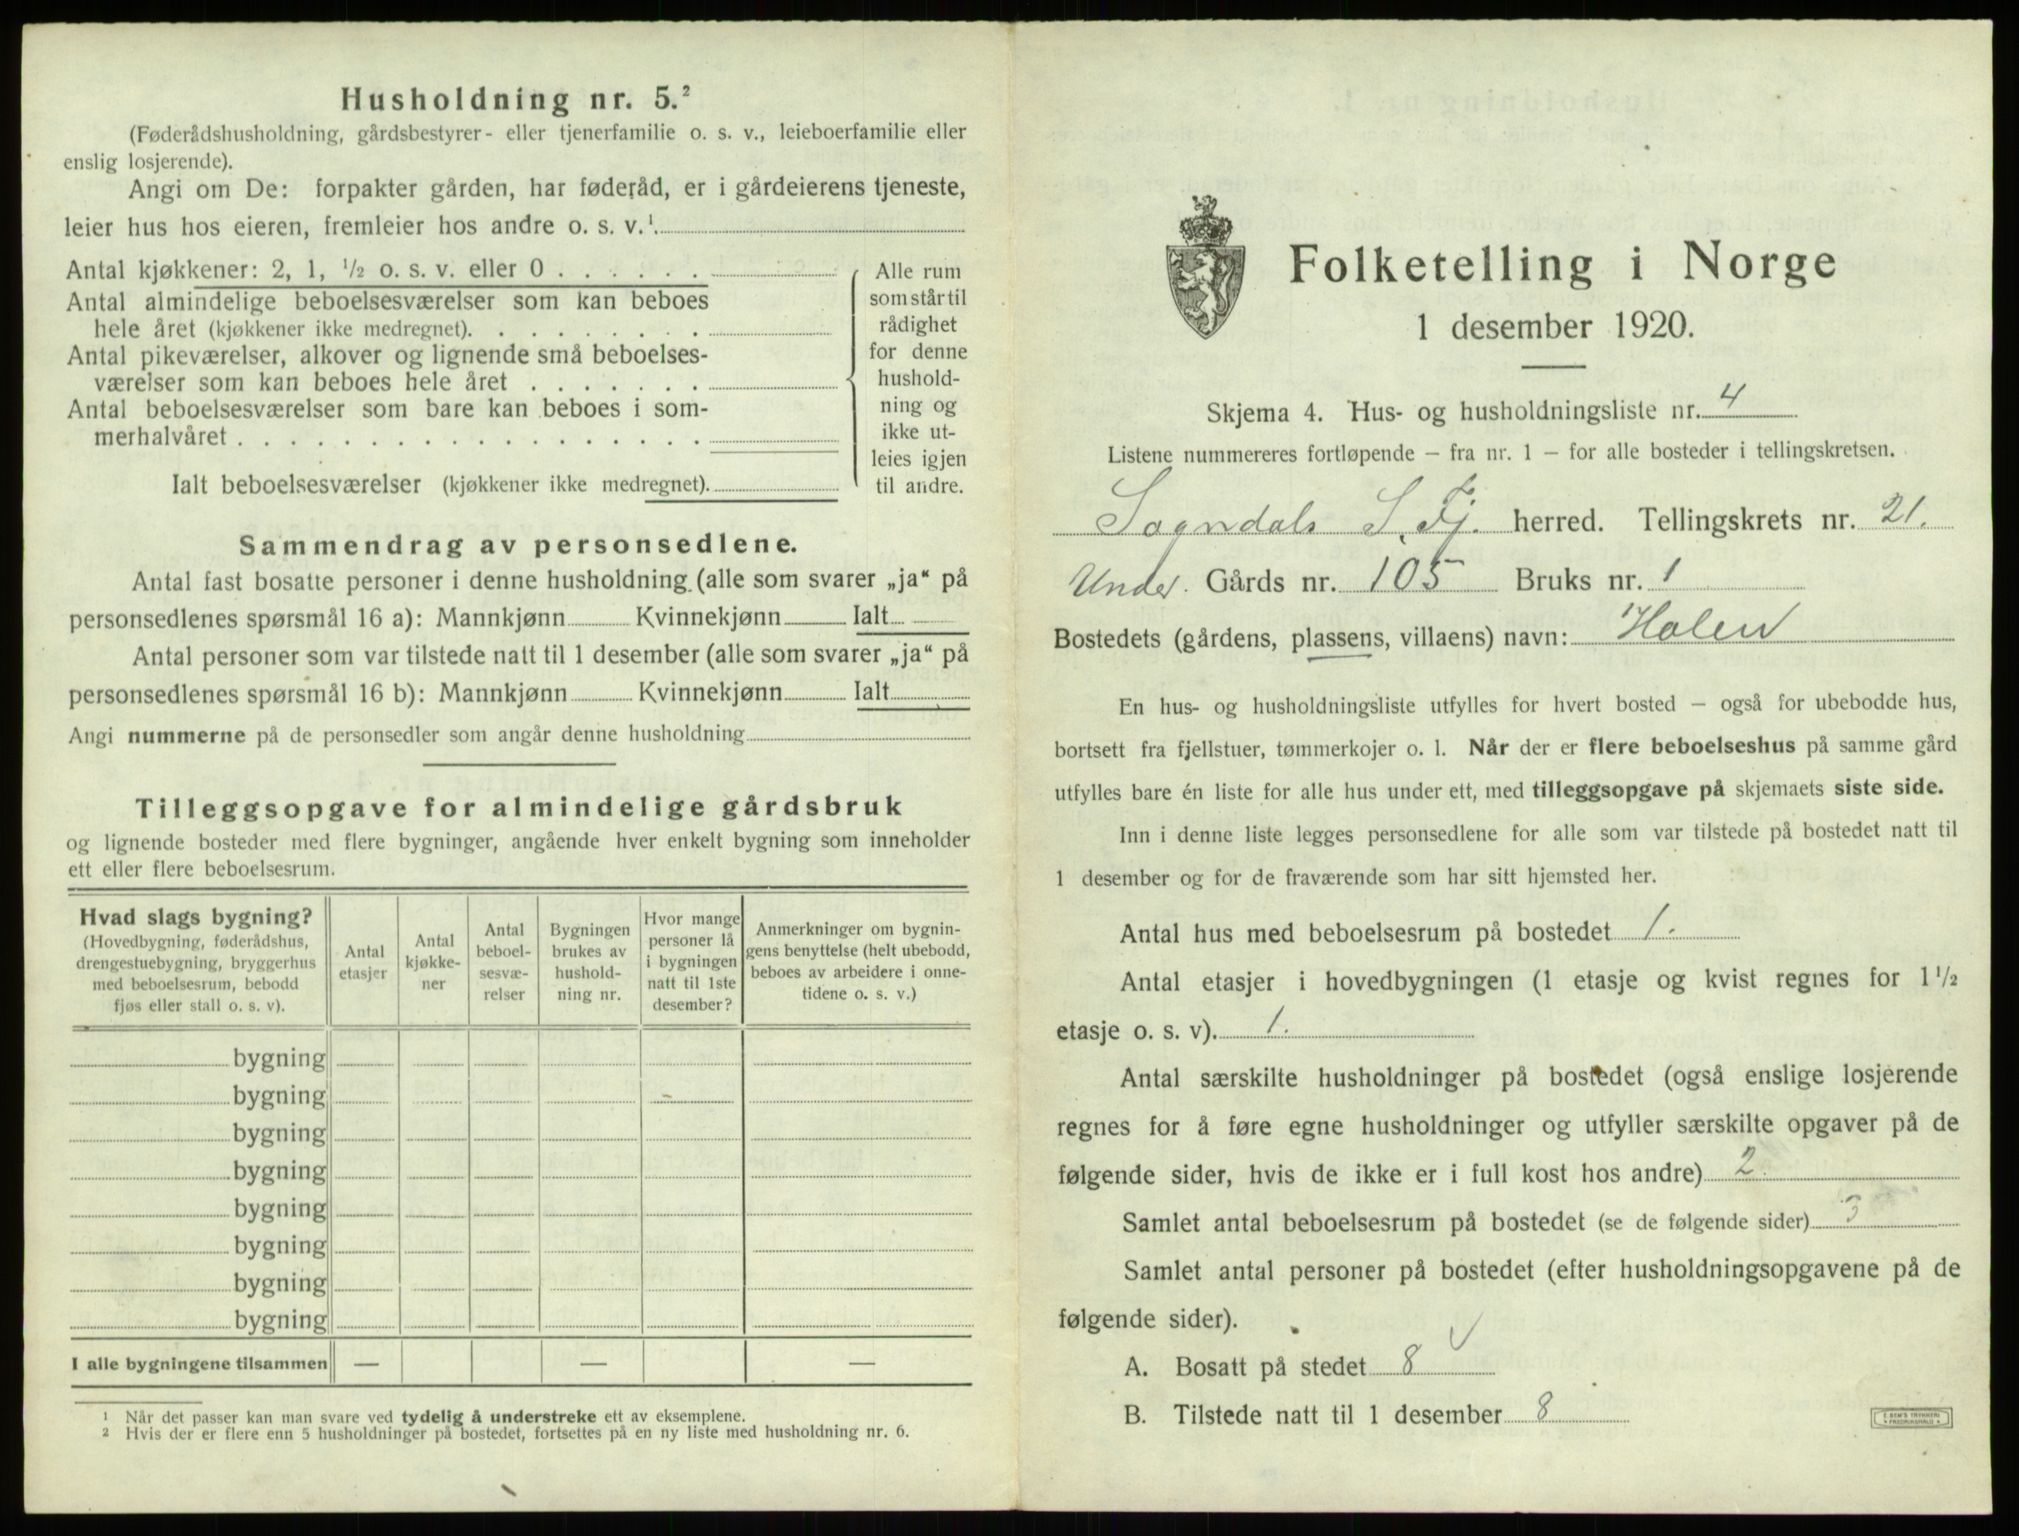 Husholdning nr. 5.²
(Føderådshusholdning, gårdsbestyrer- eller tjenerfamilie o. s. v., leieboerfamilie eller
enslig losjerende).
Angi om De: forpakter gården, har føderåd, er i gårdeierens tjeneste,
leier hus hos eieren, fremleier hos andre o. s. v.¹
Antal kjøkkener: 2, 1, ½ o. s. v. eller 0 . . . . . .
Antal almindelige beboelsesværelser som kan beboes
hele året (kjøkkener ikke medregnet). . . . . . . . .
Antal pikeværelser, alkover og lignende små beboelses-
værelser som kan beboes hele året . . . . . . .
Antal beboelsesværelser som bare kan beboes i som-
merhalvåret . . . . . . . . . . . . . . . . . .
Ialt beboelsesværelser (kjøkkener ikke medregnet).
Alle rum
som står til
rådighet
for denne
hushold-
ning og
ikke ut-
leies igjen
til andre.
Sammendrag av personsedlene.
Antal fast bosatte personer i denne husholdning (alle som svarer „ja“ på
personsedlenes spørsmål 16 a): Mannkjønn Kvinnekjønn Ialt
Antal personer som var tilstede natt til 1 desember (alle som svarer „ja“ på
personsedlenes spørsmål 16 b): Mannkjønn Kvinnekjønn Ialt
Angi nummerne på de personsedler som angår denne husholdning
Tilleggsopgave for almindelige gårdsbruk
og lignende bosteder med flere bygninger, angående hver enkelt bygning som inneholder
ett eller flere beboelsesrum.
Hvad slags bygning?
(Hovedbygning, føderådshus,
drengestuebygning, bryggerhus
med beboelsesrum, bebodd
fjøs eller stall o. s. v).
Antal
etasjer
Antal
kjøkke-
ner
Antal
beboel-
sesvæ-
relser
Bygningen
brukes av
hushold-
ning nr.
Hvor mange
personer lå
i bygningen
natt til 1ste
desember?
Anmerkninger om bygnin-
gens benyttelse (helt ubebodd,
beboes av arbeidere i onne-
tidene o. s. v.)
bygning
bygning
bygning
bygning
bygning
bygning
bygning
bygning
I alle bygningene tilsammen — — —
¹ Når det passer kan man svare ved tydelig å understreke ett av eksemplene.
² Hvis der er flere enn 5 husholdninger på bostedet, fortsettes på en ny liste med husholdning nr. 6.
Folketelling i Norge
1 desember 1920.
Skjema 4. Hus- og husholdningsliste nr. 4
Listene nummereres fortløpende — fra nr. 1 — for alle bosteder i tellingskretsen.
Sogndals S. Fj. herred. Tellingskrets nr. 21.
Under. Gårds nr. 105 Bruks nr. 1
Bostedets (gårdens, plassens, villaens) navn: Holen
En hus- og husholdningsliste utfylles for hvert bosted — også for ubebodde hus,
bortsett fra fjellstuer, tømmerkojer o. l. Når der er flere beboelseshus på samme gård
utfylles bare én liste for alle hus under ett, med tilleggsopgave på skjemaets siste side.
Inn i denne liste legges personsedlene for alle som var tilstede på bostedet natt til
1 desember og for de fraværende som har sitt hjemsted her.
Antal hus med beboelsesrum på bostedet 1.
Antal etasjer i hovedbygningen (1 etasje og kvist regnes for 1 ½
etasje o. s. v). 1.
Antal særskilte husholdninger på bostedet (også enslige losjerende
regnes for å føre egne husholdninger og utfyller særskilte opgaver på de
følgende sider, hvis de ikke er i full kost hos andre) 2.
Samlet antal beboelsesrum på bostedet (se de følgende sider) 3
Samlet antal personer på bostedet (efter husholdningsopgavene på de
følgende sider).
A. Bosatt på stedet 8
B. Tilstede natt til 1 desember 8
E. SEM'S TRYKKERI
FREDRIKSHALD